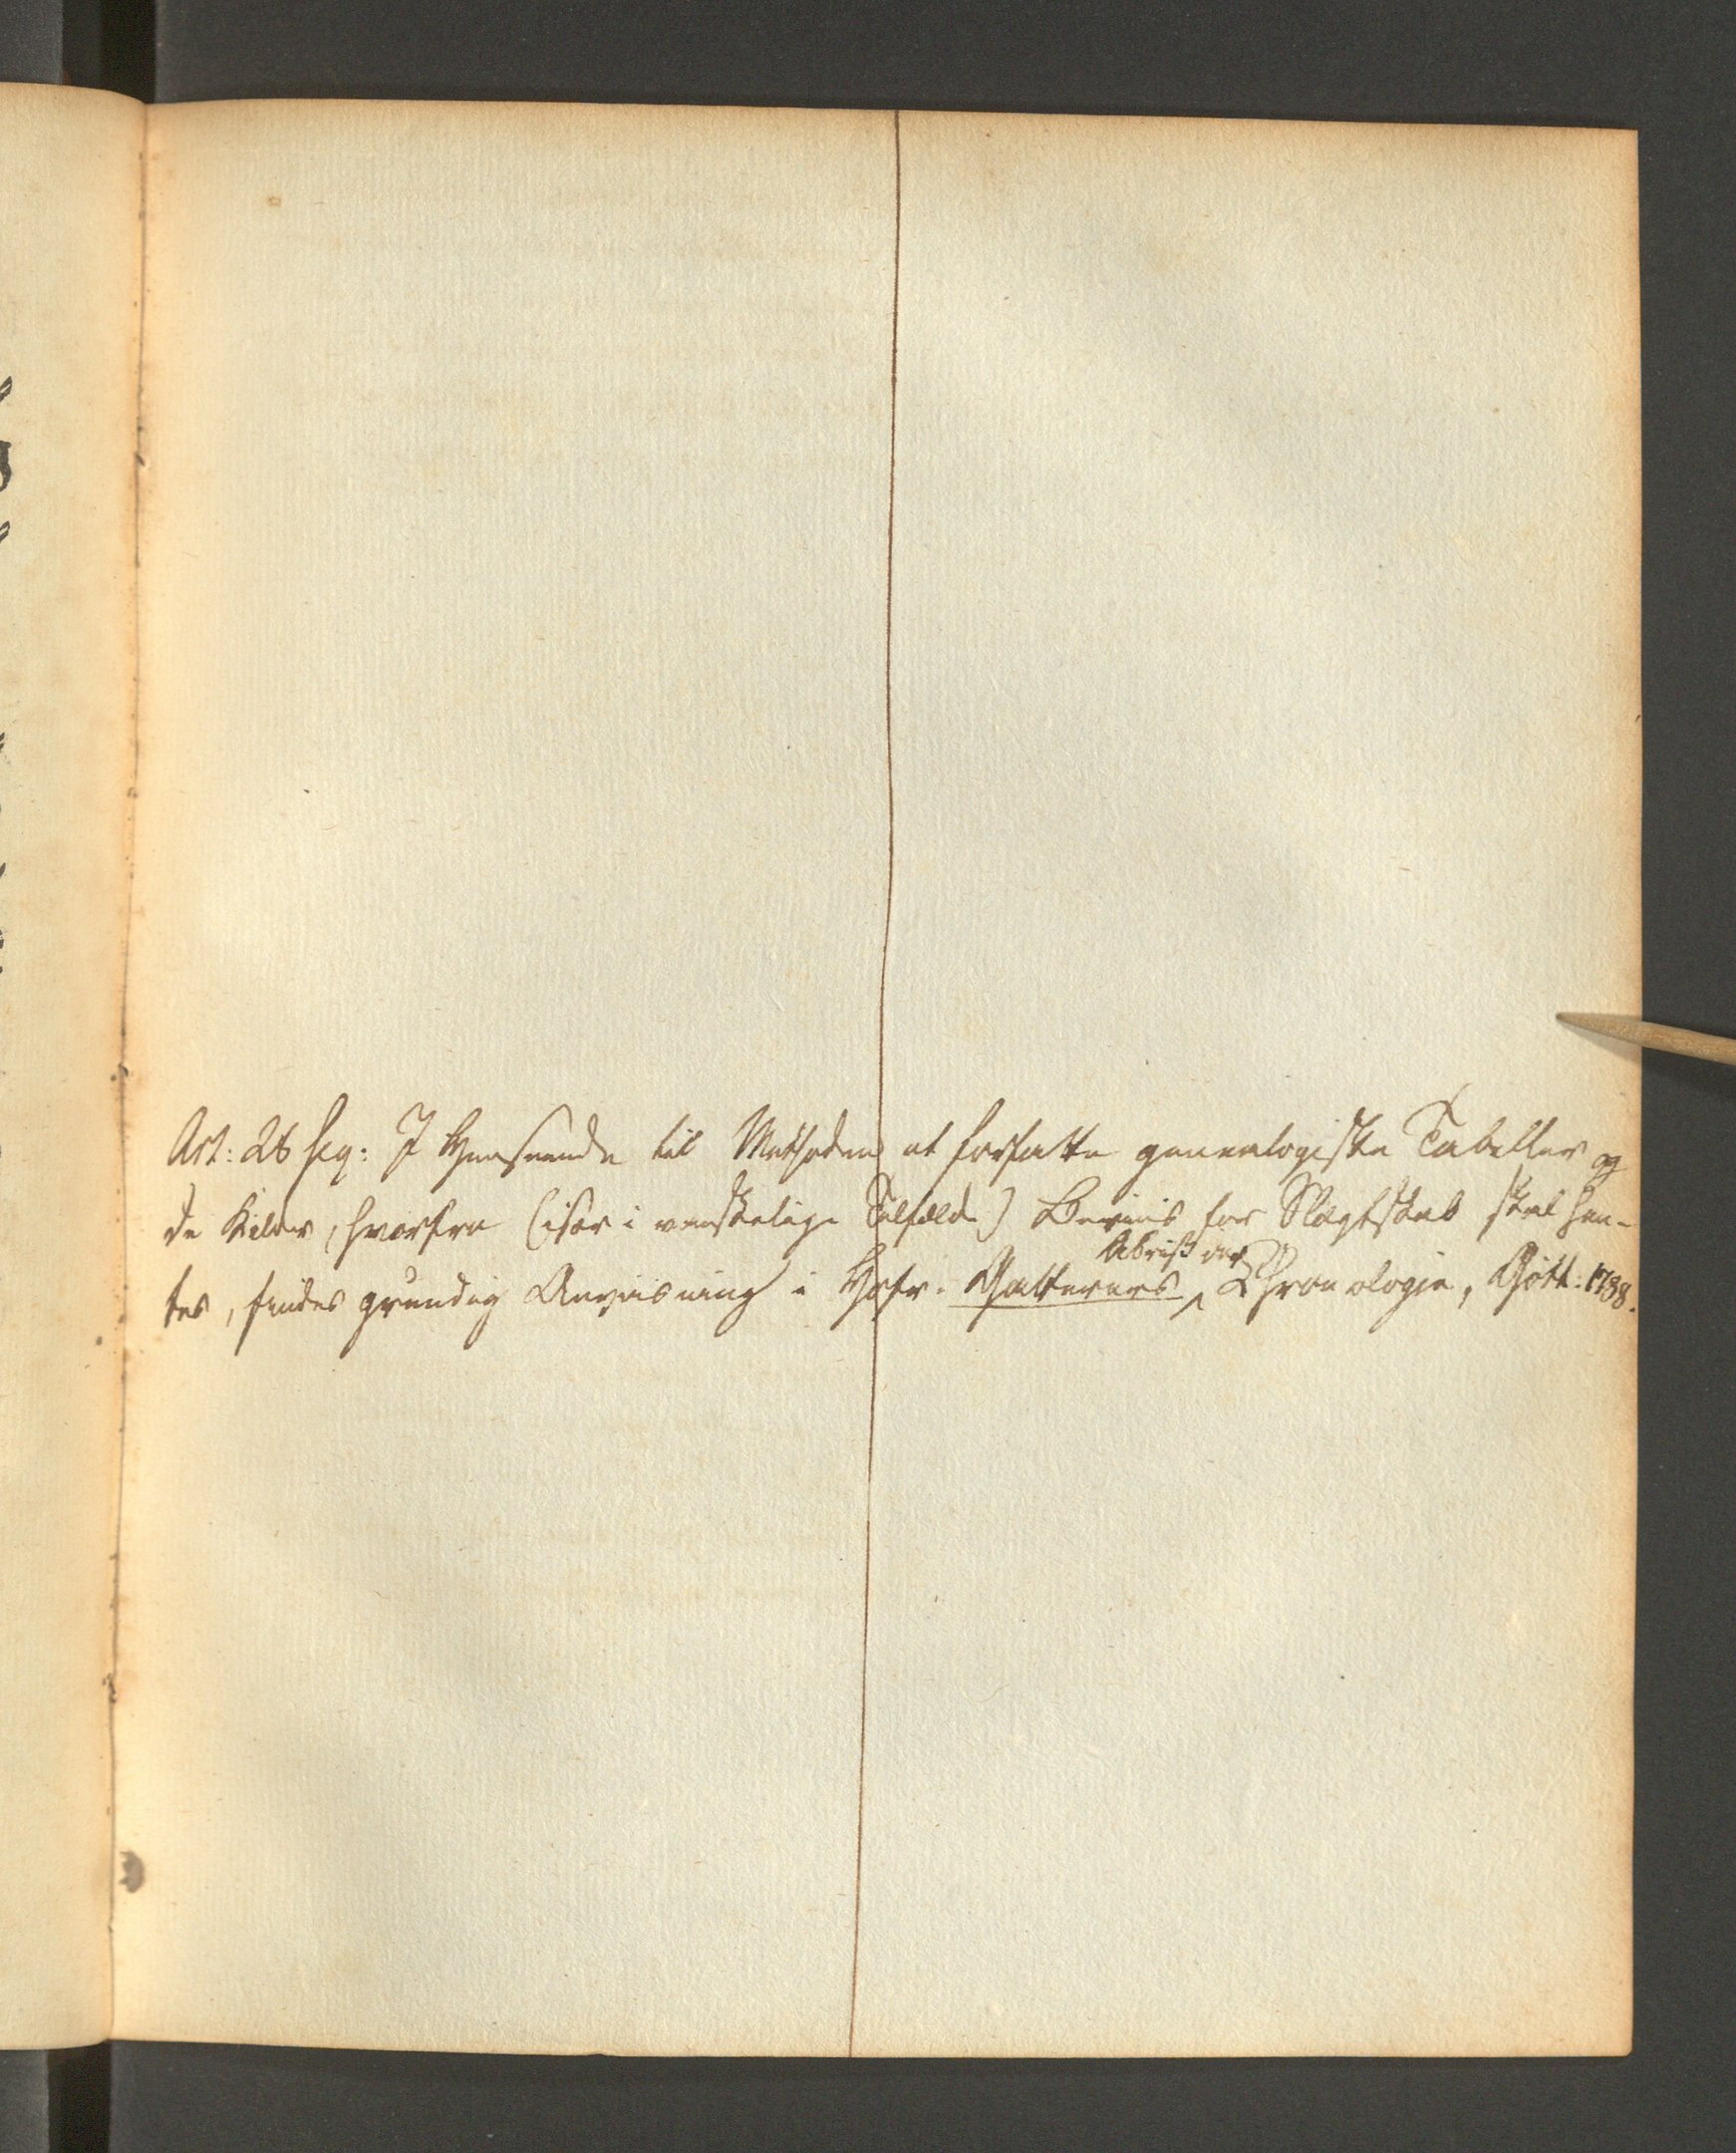 Art: 26 seq: I Henseende til Methoden at forfatte genealogiske Tabeller og
de Kilder, hvorfra (især i vanskelige Tilfælde) Beviis for Slægtskab skal hen-
tes, findes grundig Anviisning i Hofr. Gatterers Abriß der Chronologie, Gött: 1788.